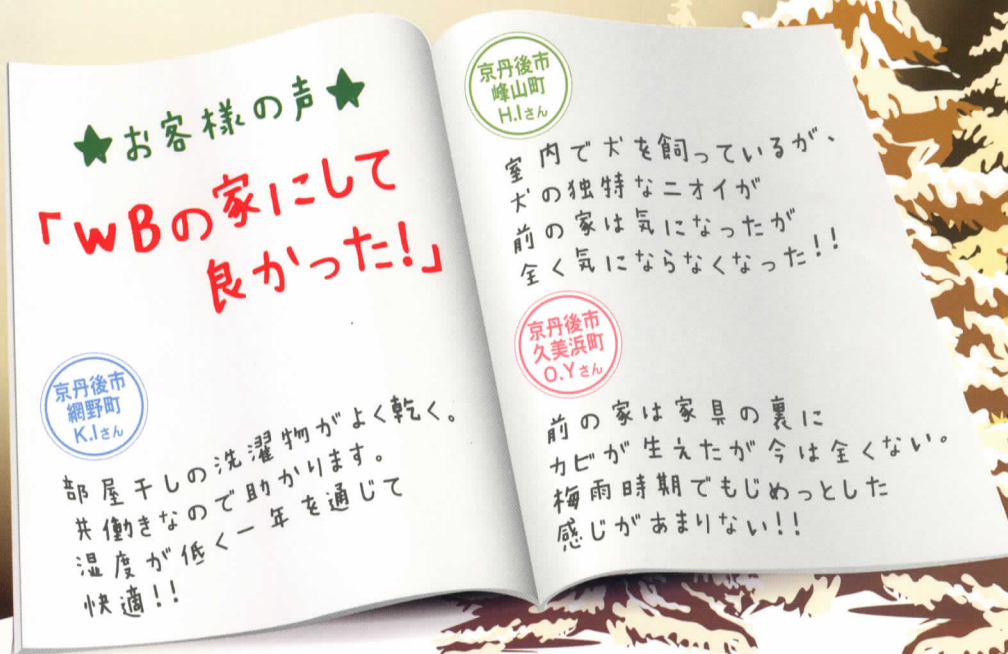 ★お客様の声★
「WBの家にして
良かった!」
京丹後市
網野町
K.Iさん
部屋干しの洗濯物がよく乾く。
共働きなので助かります。
湿度が低く一年を通じて
快適!!
京丹後市
峰山町
H.Iさん
室内で犬を飼っているが、
犬の独特なニオイが
前の家は気になったが
全く気にならなくなった!!
京丹後市
久美浜町
O.Yさん
前の家は家具の裏に
カビが生えたが今は全くない。
梅雨時期でもじめっとした
感じがあまりない!!